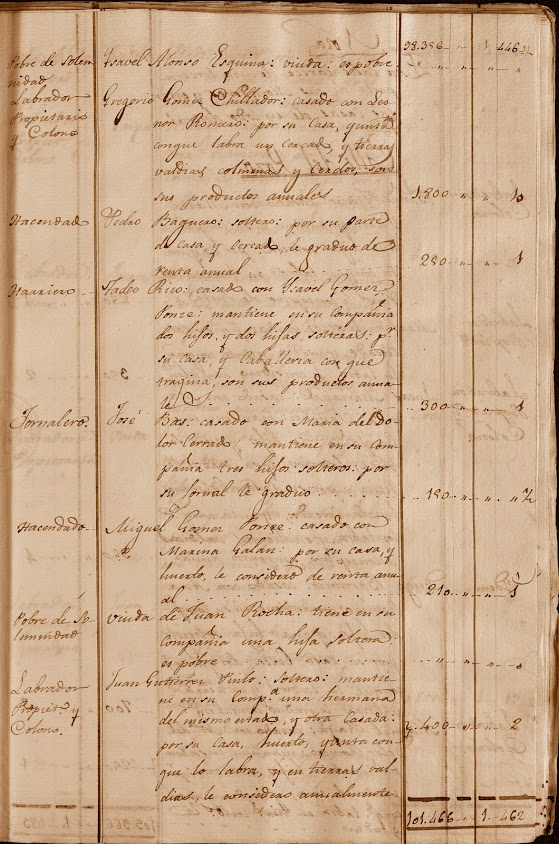 98.386 " 1. 446 ½
Pobre de Solem Ysavel Alonso Esquina: viuda: es pobre " " "
nidad
Labrador Gregorio Gomez Chillador: casado con Leo
Propietario nor Romero: por su Casa, yunta
y Colono conque labra un cercado, y tierras
valdias colmenas y Cerdos, son
sus productos anuales 1.800 " "
Hacendado Pedro Baquero: soltero: por su parte
de casa, y cercado, le graduo de
renta anual 280 " " 1
Harriero Tadeo Rico: casado con Ysavel Gomez
Ponze: mantiene en su Compañia
dos hijos, y dos hijas, solteras: pr
su casa, y Caballeria con que
tragina, son sus productos anua-
les 300 " " 1
Jornalero. José Bas: casado con Maria del Do
lor Cerrado: mantiene en su Com
pañia tres hijos solteros: por
su jornal le graduo 180 " " " ½
Hacendado Miguel Gomez Ponze: casado con
Marina Galan: por su casa, y
huerto, le considero de renta anu
al 210 " " 1
Pobre de So viuda de Juan Rocha: tiene en su
lemnidad compañia una hija soltera:
es pobre " " "
Labrador Juan Gutierrez Pinto: soltero: mantie-
Propieto y ne en su Compa una hermana
Colono. del mismo estado, y otra Casada:
por su Casa, huerto, yunta con-
que lo labra, y en tierras val-
dias, le considero anualmente 2
101.466 " 1. 462